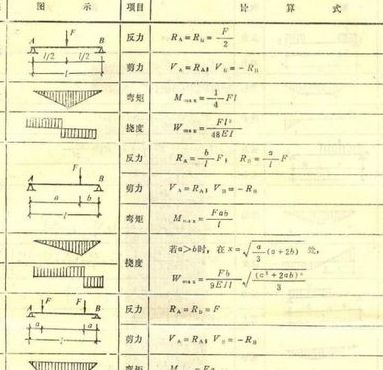 图 示 项目 计 算 式
F
A B
l/2 l/2
l
反力 R_A=R_B=F/2
剪力 V_A=R_A; V_B=-R_B
弯矩 M_max=1/4 Fl
挠度 W_max=Fl³/48EI
F
A B
a b
l
反力 R_A=b/l F; R_B=a/l F
剪力 V_A=R_A; V_B=-R_B
弯矩 M_max=Fab/l
挠度 若a>b时,在 x=√(a/3 (a+2b)) 处,
W_max=Fb/9EIl √((a²+2ab)³/3)
A F F B
a a
l
反力 R_A=R_B=F
剪力 V_A=R_A; V_B=-R_B
弯矩